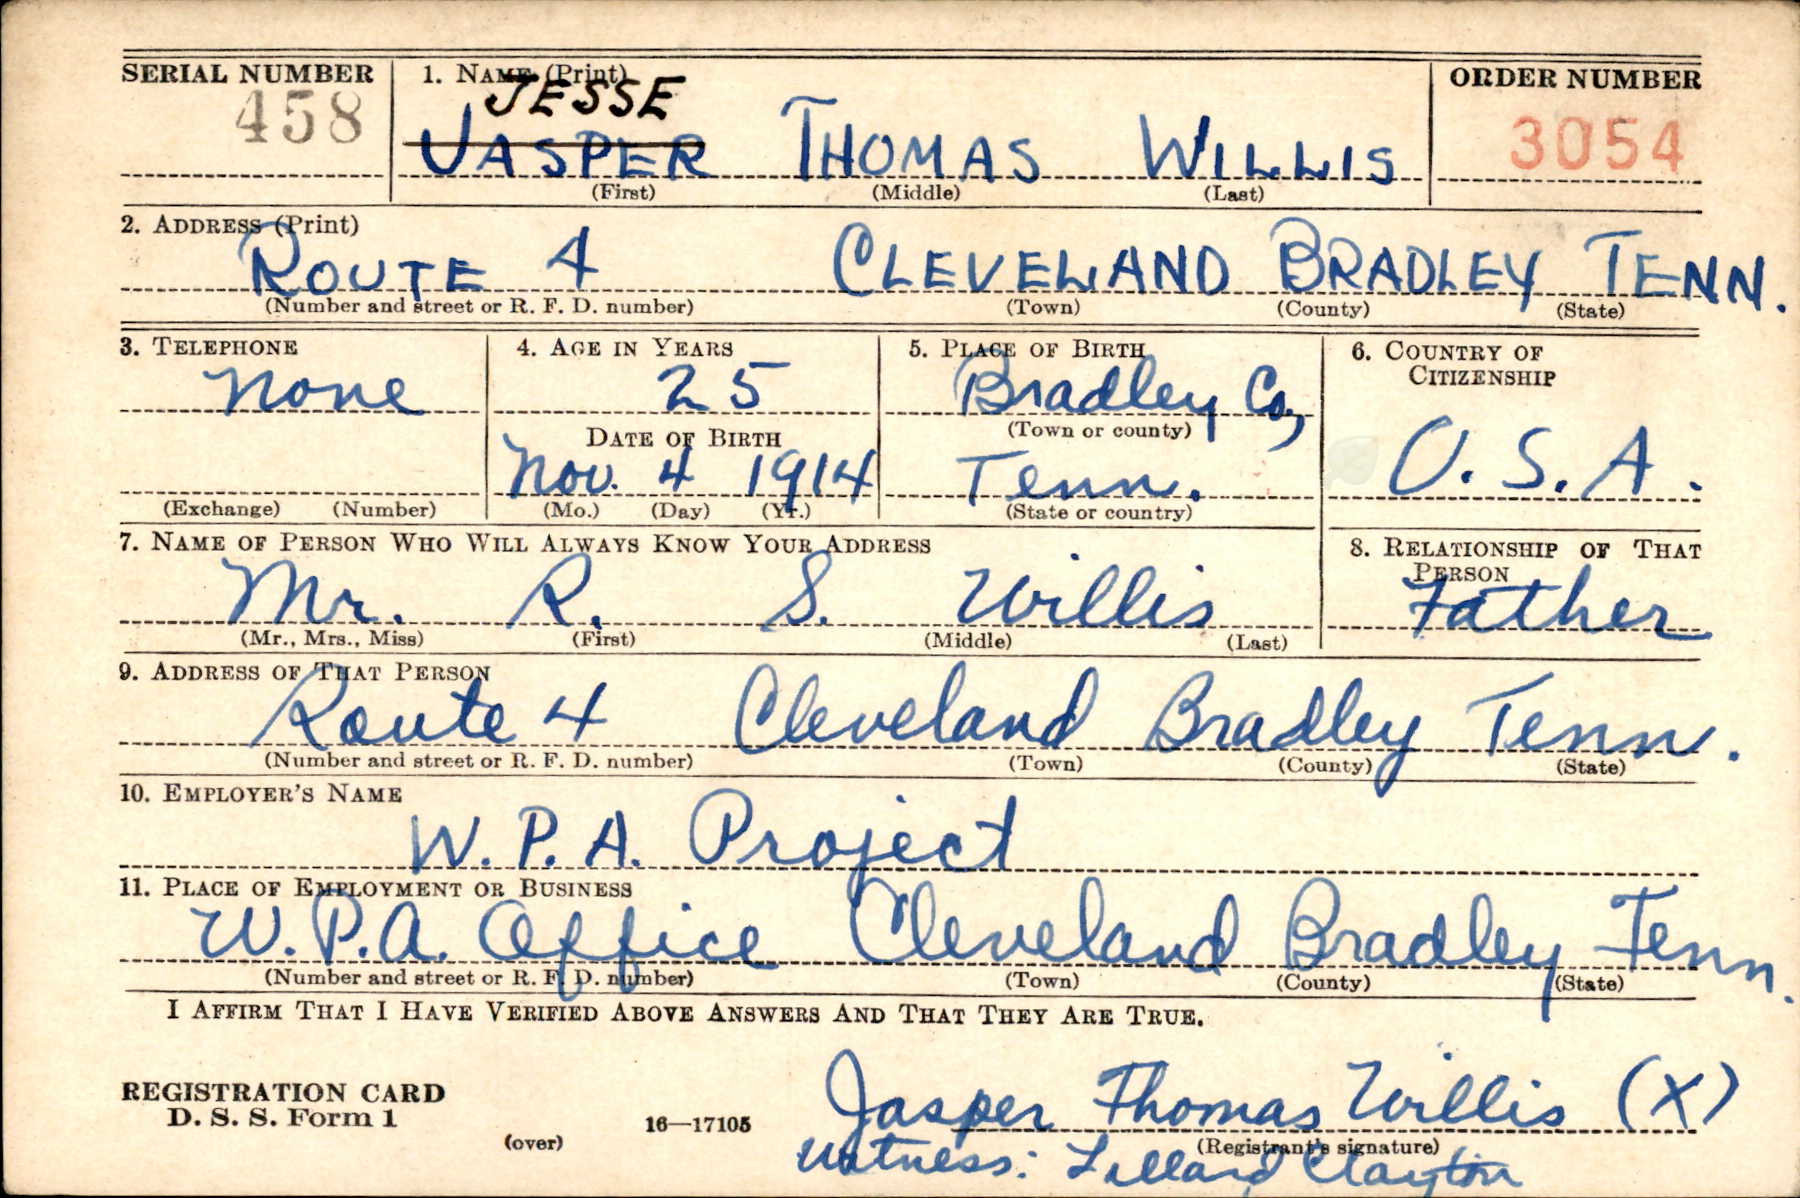 SERIAL NUMBER 1. NAME (Print) ORDER NUMBER
458 JESSE 3054
JASPER THOMAS WILLIS
(First) (Middle) (Last)
2. ADDRESS (Print)
ROUTE 4 CLEVELAND BRADLEY TENN.
(Number and street or R. F. D. number) (Town) (County) (State)
3. TELEPHONE 4. AGE IN YEARS 5. PLACE OF BIRTH 6. COUNTRY OF
CITIZENSHIP
None 25 Bradley Co,
DATE OF BIRTH (Town or county)
Nov. 4 1914 Tenn. U. S. A.
(Exchange) (Number) (Mo.) (Day) (Yr.) (State or country)
7. NAME OF PERSON WHO WILL ALWAYS KNOW YOUR ADDRESS 8. RELATIONSHIP OF THAT
PERSON
Mr. R. S. Willis Father
(Mr., Mrs., Miss) (First) (Middle) (Last)
9. ADDRESS OF THAT PERSON
Route 4 Cleveland Bradley Tenn.
(Number and street or R. F. D. number) (Town) (County) (State)
10. EMPLOYER'S NAME
W. P. A. Project
11. PLACE OF EMPLOYMENT OR BUSINESS
W. P. A. Office Cleveland Bradley Tenn.
(Number and street or R. F. D. number) (Town) (County) (State)
I AFFIRM THAT I HAVE VERIFIED ABOVE ANSWERS AND THAT THEY ARE TRUE.
REGISTRATION CARD
D. S. S. Form 1 16—17105 Jasper Thomas Willis (X)
(over) (Registrant's signature)
Witness: Lillard Clayton